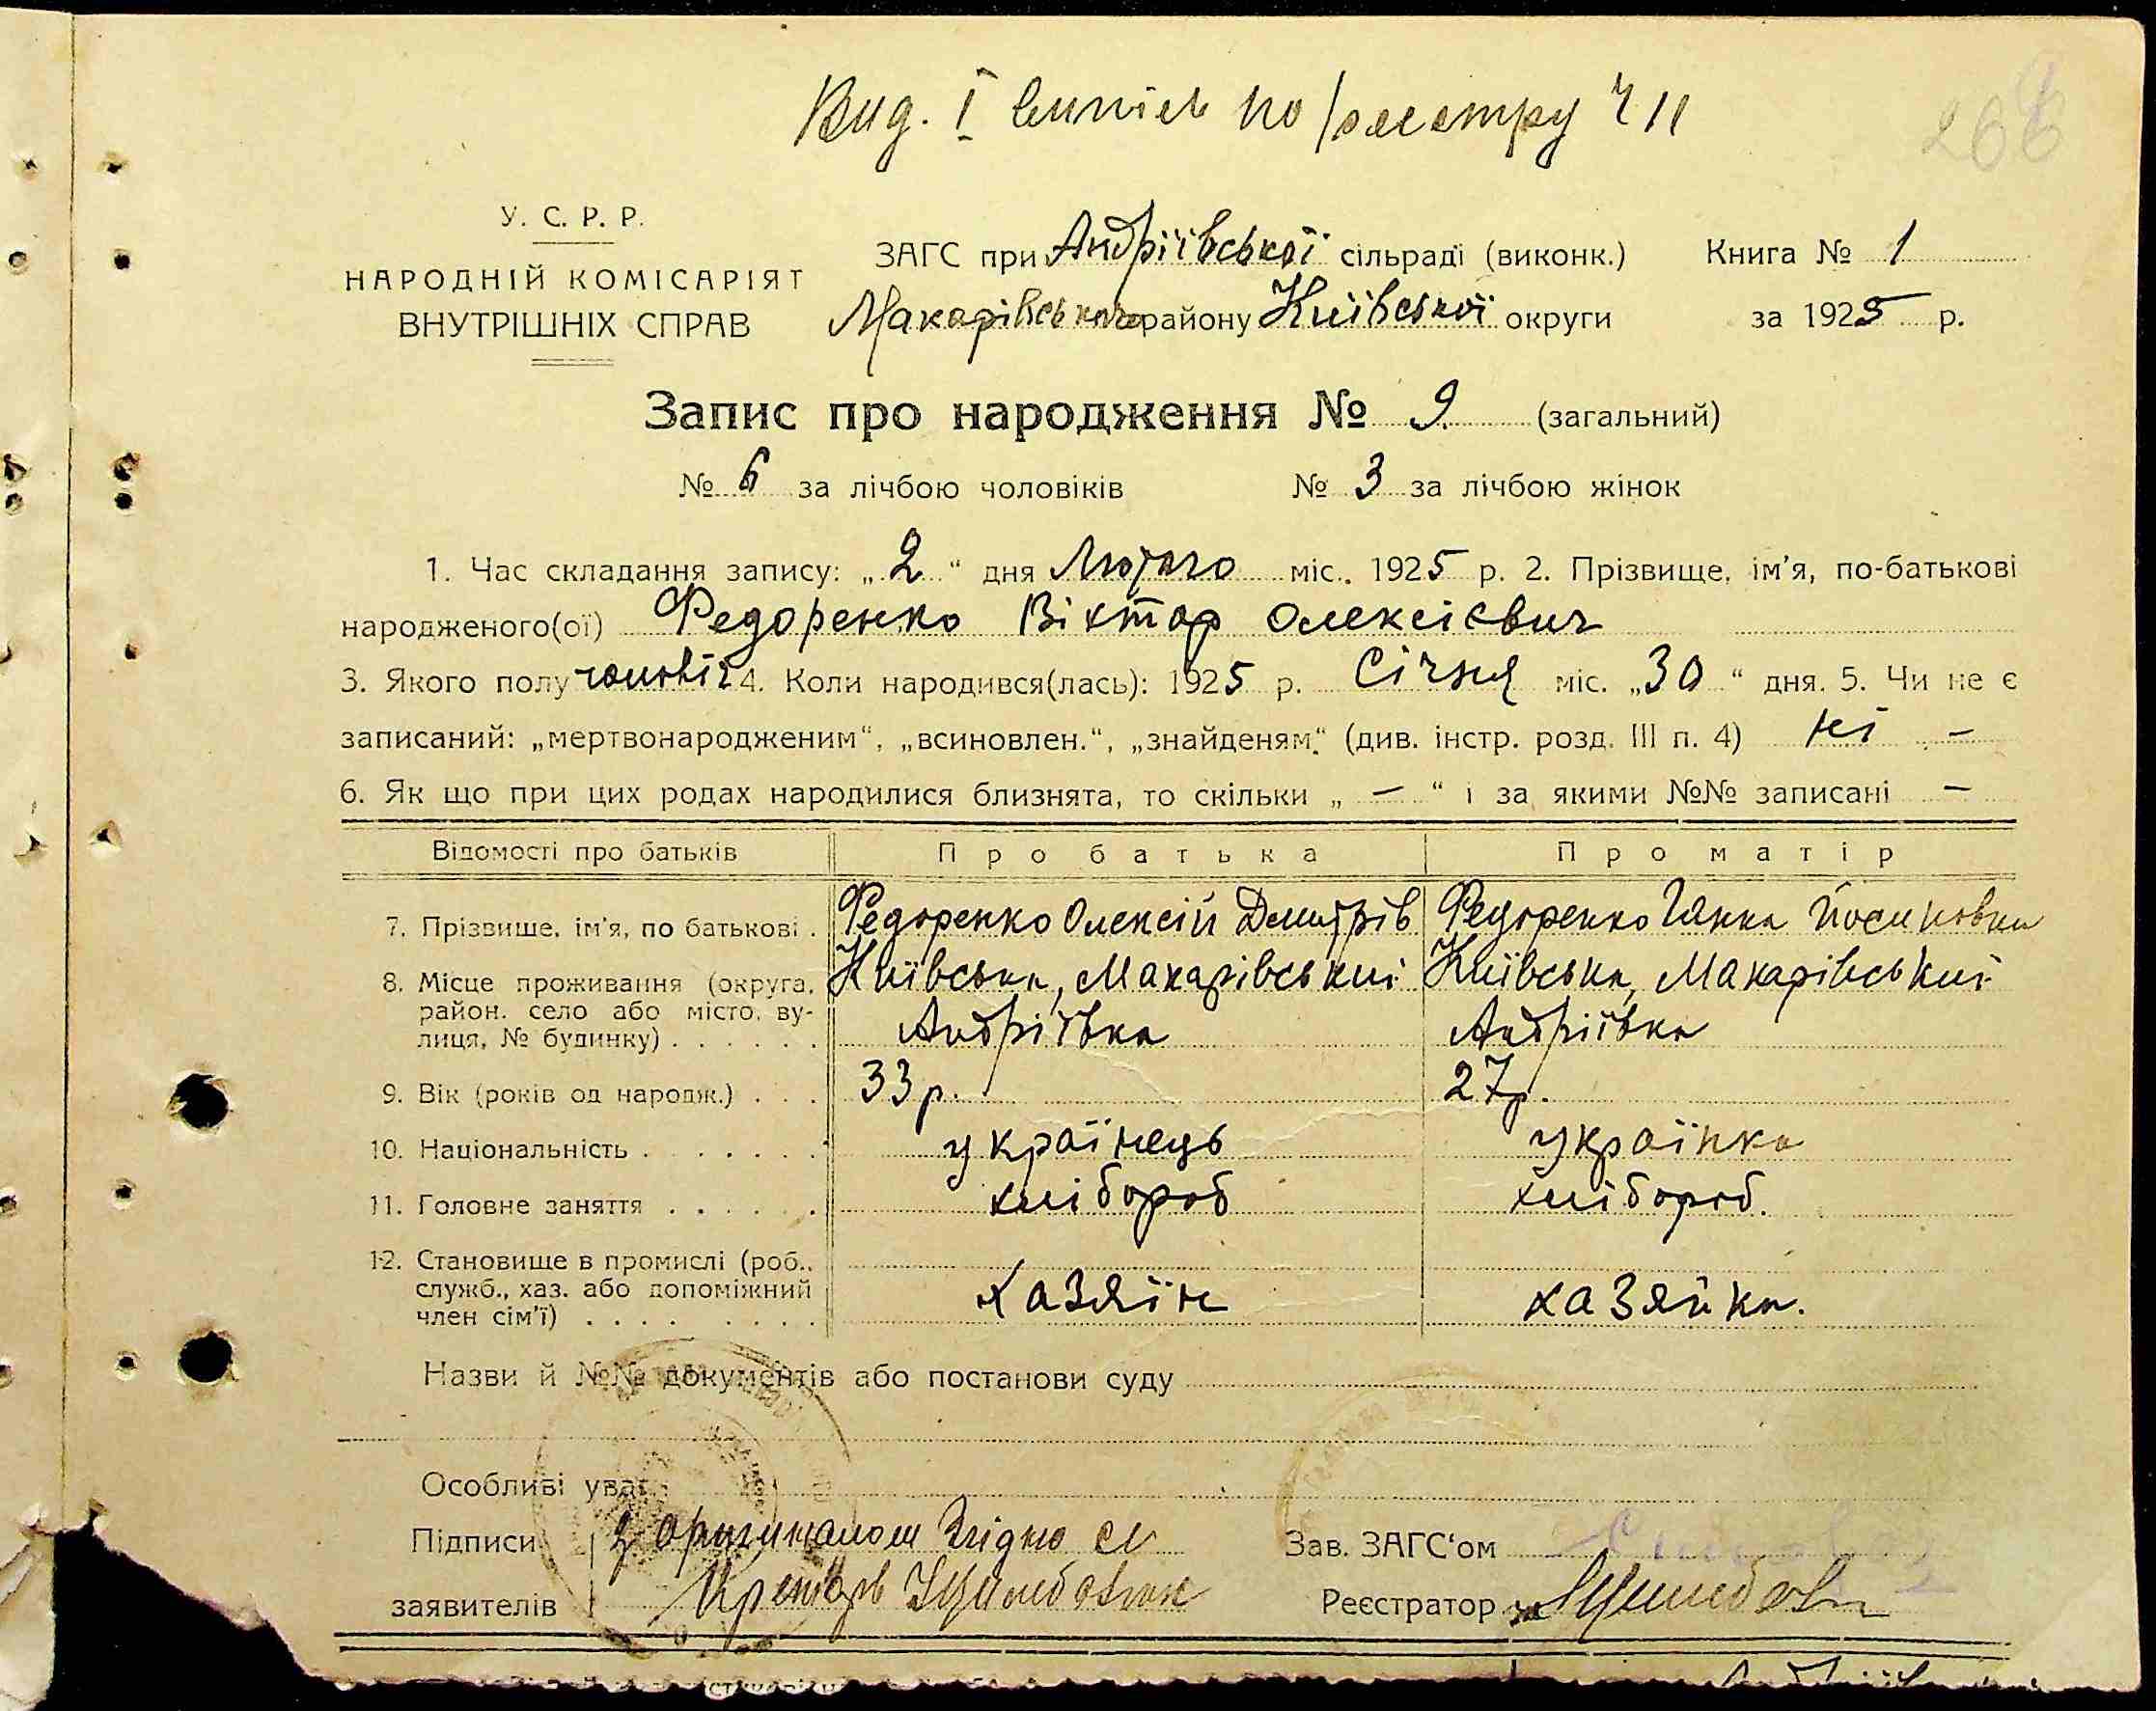 Вид. І випись по реєстру Ч 11
У. С. Р. Р.
НАРОДНІЙ КОМІСАРІЯТ
ВНУТРІШНІХ СПРАВ
ЗАГС при Андріївської сільраді (виконк.) Книга № 1
Макарівського району Київської округи за 1925 р.
Запис про народження № 9. (загальний)
№ 6 за лічбою чоловіків № 3 за лічбою жінок
1. Час складання запису: „2“ дня Лютого міс. 1925 р. 2. Прізвище, ім'я, по-батькові
народженого(ої) Федоренко Віктор Олексієвич
3. Якого полу чоловіч 4. Коли народився(лась): 1925 р. Січня міс. „30“ дня. 5. Чи не є
записаний: „мертвонародженим“, „всиновлен.“, „знайденям“ (див. інстр. розд. III п. 4) ні –
6. Як що при цих родах народилися близнята, то скільки „ – “ і за якими №№ записані –
Відомості про батьків Про батька Про матір
7. Прізвище, ім'я, по батькові . Федоренко Олексій Дмитрів Федоренко Ганна Йосиповна
8. Місце проживання (округа, Київська, Макарівський Київська, Макарівський
район, село або місто, ву-
лиця, № будинку) . . . . . . Андріївка Андріївка
9. Вік (років од народж.) . . . 33 р. 27 р.
10. Національність . . . . . . . українець українка
11. Головне заняття . . . . . . хлібороб хлібороб.
12. Становище в промислі (роб.,
служб., хаз. або допоміжний хазяїн хазяйка.
член сім'ї) . . . . . . . .
Назви й №№ документів або постанови суду
Особливі уваг
Підписи З оригиналом згідно
заявителів
Зав. ЗАГС‘ом
Реєстратор